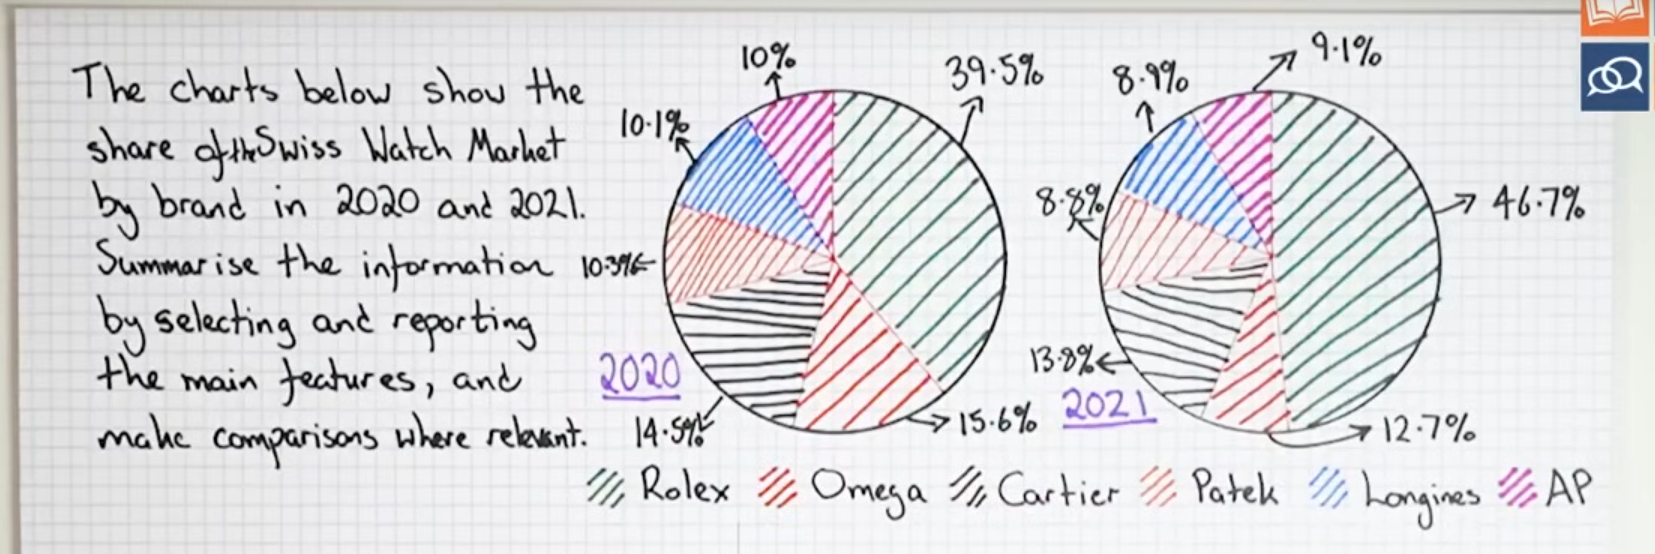 The charts below show the
share of the Swiss Watch Market
by brand in 2020 and 2021.
Summarise the information
by selecting and reporting
the main features, and
make comparisons where relevant.
10%
39.5%
10.1%
10.3%
2020
14.5%
15.6%
9.1%
8.9%
8.8%
46.7%
13.8%
2021
12.7%
Rolex Omega Cartier Patek Longines AP